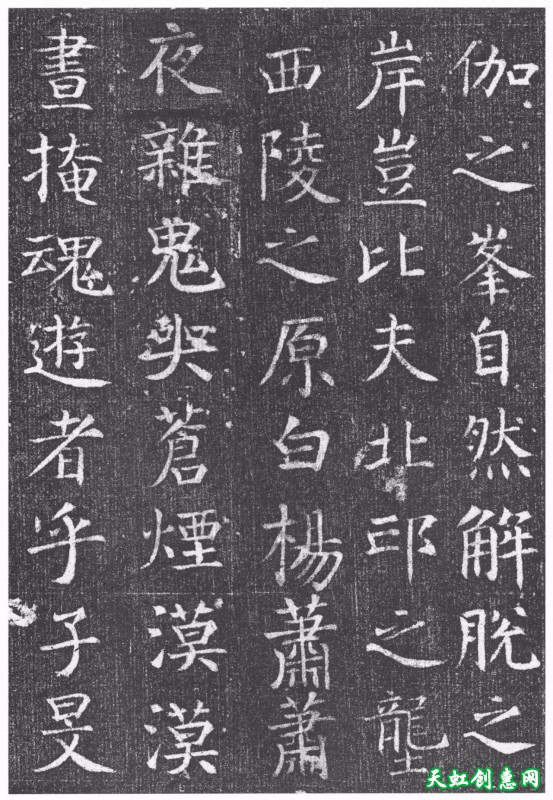 伽之峯自然解脫之
岸豈比夫北邙之壟
西陵之原白楊蕭蕭
夜雜鬼哭蒼煙漠漠
晝掩魂遊者乎子旻
天虹创惠网